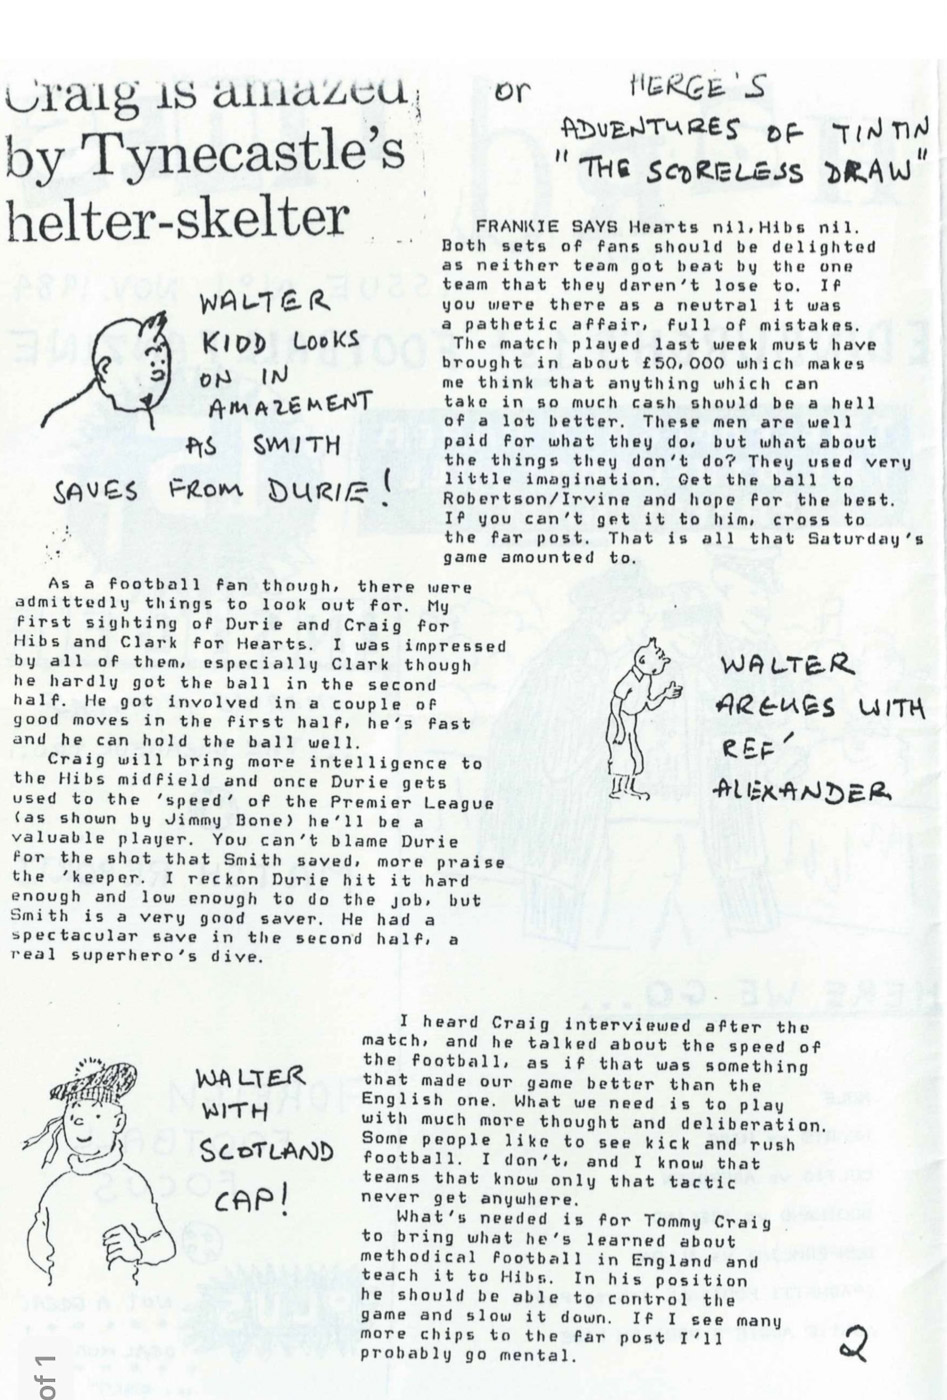 Craig is amazed
by Tynecastle's
helter-skelter
or HERGE'S
ADVENTURES OF TINTIN
"THE SCORELESS DRAW"
FRANKIE SAYS Hearts nil, Hibs nil.
Both sets of fans should be delighted
as neither team got beat by the one
team that they daren't lose to. If
you were there as a neutral it was
a pathetic affair, full of mistakes.
The match played last week must have
brought in about £50,000 which makes
me think that anything which can
take in so much cash should be a hell
of a lot better. These men are well
paid for what they do, but what about
the things they don't do? They used very
little imagination. Get the ball to
Robertson/Irvine and hope for the best.
If you can't get it to him, cross to
the far post. That is all that Saturday's
game amounted to.
WALTER
KIDD LOOKS
ON IN
AMAZEMENT
AS SMITH
SAVES FROM DURIE!
As a football fan though, there were
admittedly things to look out for. My
first sighting of Durie and Craig for
Hibs and Clark for Hearts. I was impressed
by all of them, especially Clark though
he hardly got the ball in the second
half. He got involved in a couple of
good moves in the first half, he's fast
and he can hold the ball well.
Craig will bring more intelligence to
the Hibs midfield and once Durie gets
used to the 'speed' of the Premier League
(as shown by Jimmy Bone) he'll be a
valuable player. You can't blame Durie
for the shot that Smith saved, more praise
the 'keeper. I reckon Durie hit it hard
enough and low enough to do the job, but
Smith is a very good saver. He had a
spectacular save in the second half, a
real superhero's dive.
WALTER
ARGUES WITH
REF'
ALEXANDER
WALTER
WITH
SCOTLAND
CAP!
I heard Craig interviewed after the
match, and he talked about the speed of
the football, as if that was something
that made our game better than the
English one. What we need is to play
with much more thought and deliberation.
Some people like to see kick and rush
football. I don't, and I know that
teams that know only that tactic
never get anywhere.
What's needed is for Tommy Craig
to bring what he's learned about
methodical football in England and
teach it to Hibs. In his position
he should be able to control the
game and slow it down. If I see many
more chips to the far post I'll
probably go mental.
2
of 1